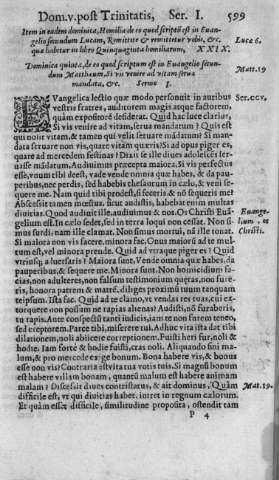 Dom. v. post Trinitatis, Ser. I. 599
Item in eadem dominica, Homilia de eo quod scriptũ est in Euan-
gelio secundum Lucam, Remittite & remittetur vobis, &c.
quæ habetur in libro Quinquaginta homiliarum, XXIX. Luce 6.
Dominica quinta, de eo quod scriptum est in Euangelio secun-
dum Matthæum, Si vis venire ad vitam serua
mandata, &c. Sermo I. Matt. 19
EVangelica lectio quæ modo personuit in auribus Ser. ccv.
vestris fratres, auditorem magis atque factorem,
quàm expositorẽ desiderat. Quid hac luce clarius,
Si vis venire ad vitam, serua mandatum? Quis est
qui nolit vitam, & tamen quis velit seruare mãdatum? Si man-
data seruare non vis, quare vitam quæris? Si ad opus piger es,
quare ad mercedem festinas? Diues ille diues adolescẽs ser-
uasse mãdatum. Audiuimus præcepta maiora. Si vis perfectus
esse, vnum tibi deest, vade vende omnia quæ habes, & da pau-
peribus, nec perdis, sed habebis thesaurum in cælo, & veni se-
quere me. Nam quid prodest, si feceris, & nõ sequeris me?
Abscessit tamen mœstus, sicut audistis, habebat enim multas
diuitias. Quod audiuit ille, audiuimus & nos. Os Christi Euã- Euange-
gelium est. In cælo sedet, sed in terra loqui non cessat. Non si- lium os
mus surdi: nam ille clamat. Non simus mortui, nã ille tonat. Christi.
Si maiora non vis facere, minora fac. Onus maiorũ ad te mul-
tum est, vel minora prende. Quid ad vtraque piger es? Quid
vtrisque aduersaris? Maiora sunt, Vende omnia quæ habes, da
pauperibus, & sequere me. Minora sunt, Non homicidium fa-
cias, non adulteres, non falsum testimonium quæras, non fure-
ris, honora patrem & matrẽ, diliges proximũ tuum tanquam
teipsum. Ista fac. Quid ad te clamo, vt vendas res tuas, cui ex-
torqueore non possum ne rapias alienas? Audisti, nõ furaberis,
tu rapis. Ante conspectũ tanti iudicis, iam te non furem teneo,
sed ereptorem. Parce tibi, miserere tui. Adhuc vita ista dat tibi
dilationem, noli abiicere correptionem. Fuisti heri fur, noli &
hodie. Iam forte & hodie fuisti, cras noli. Aliquando fini ma-
lum, & pro mercede exige bonum. Bona habere vis, & bonus
esse non vis? Contraria est vita tua votis tuis. Si magnũ bonum
est habere villam bonam, quantũ malum est habere animam
malam? Discessit diues contristatus, & ait dominus, Quàm Matt. 19.
difficile est, vt qui diuitias habet, intret in regnum cælorum.
Et quàm esset difficile, similitudine proposita, ostendit tam
P 4